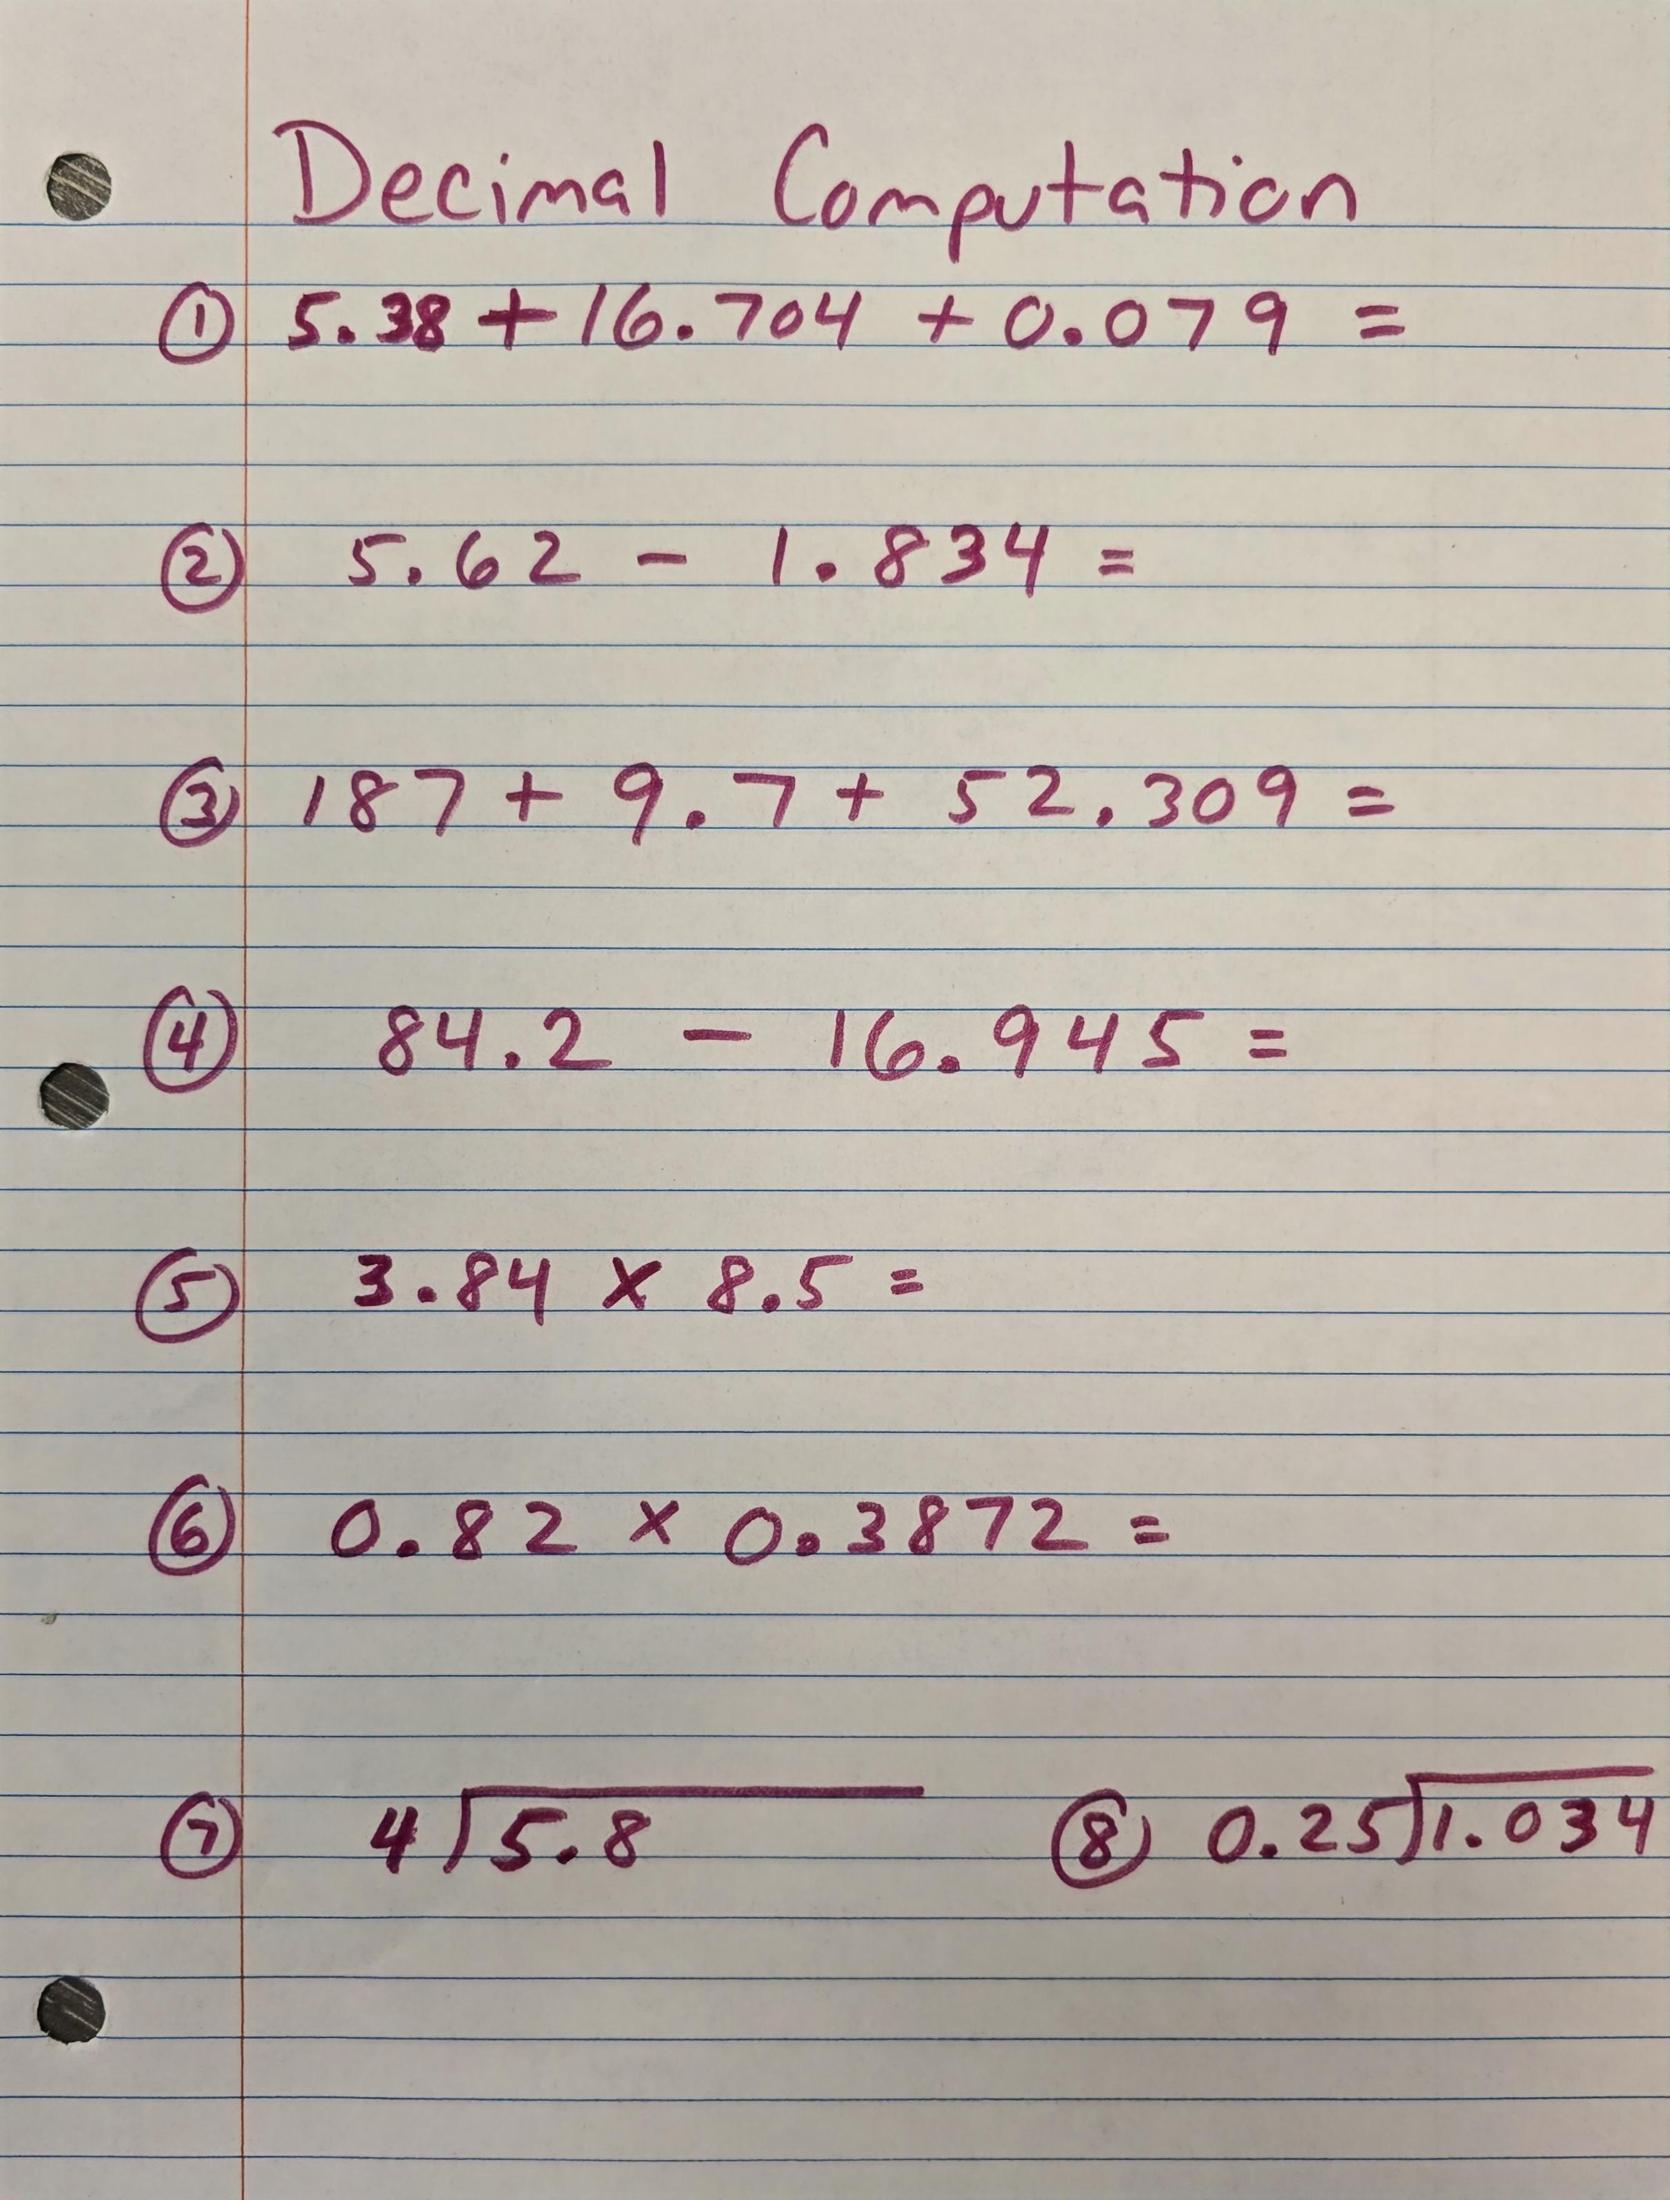 Decimal Computation
① 5.38 + 16.704 + 0.079 =
② 5.62 - 1.834 =
③ 187 + 9.7 + 52.309 =
④ 84.2 - 16.945 =
⑤ 3.84 x 8.5 =
⑥ 0.82 x 0.3872 =
⑦ 4⟌5.8 ⑧ 0.25⟌1.034